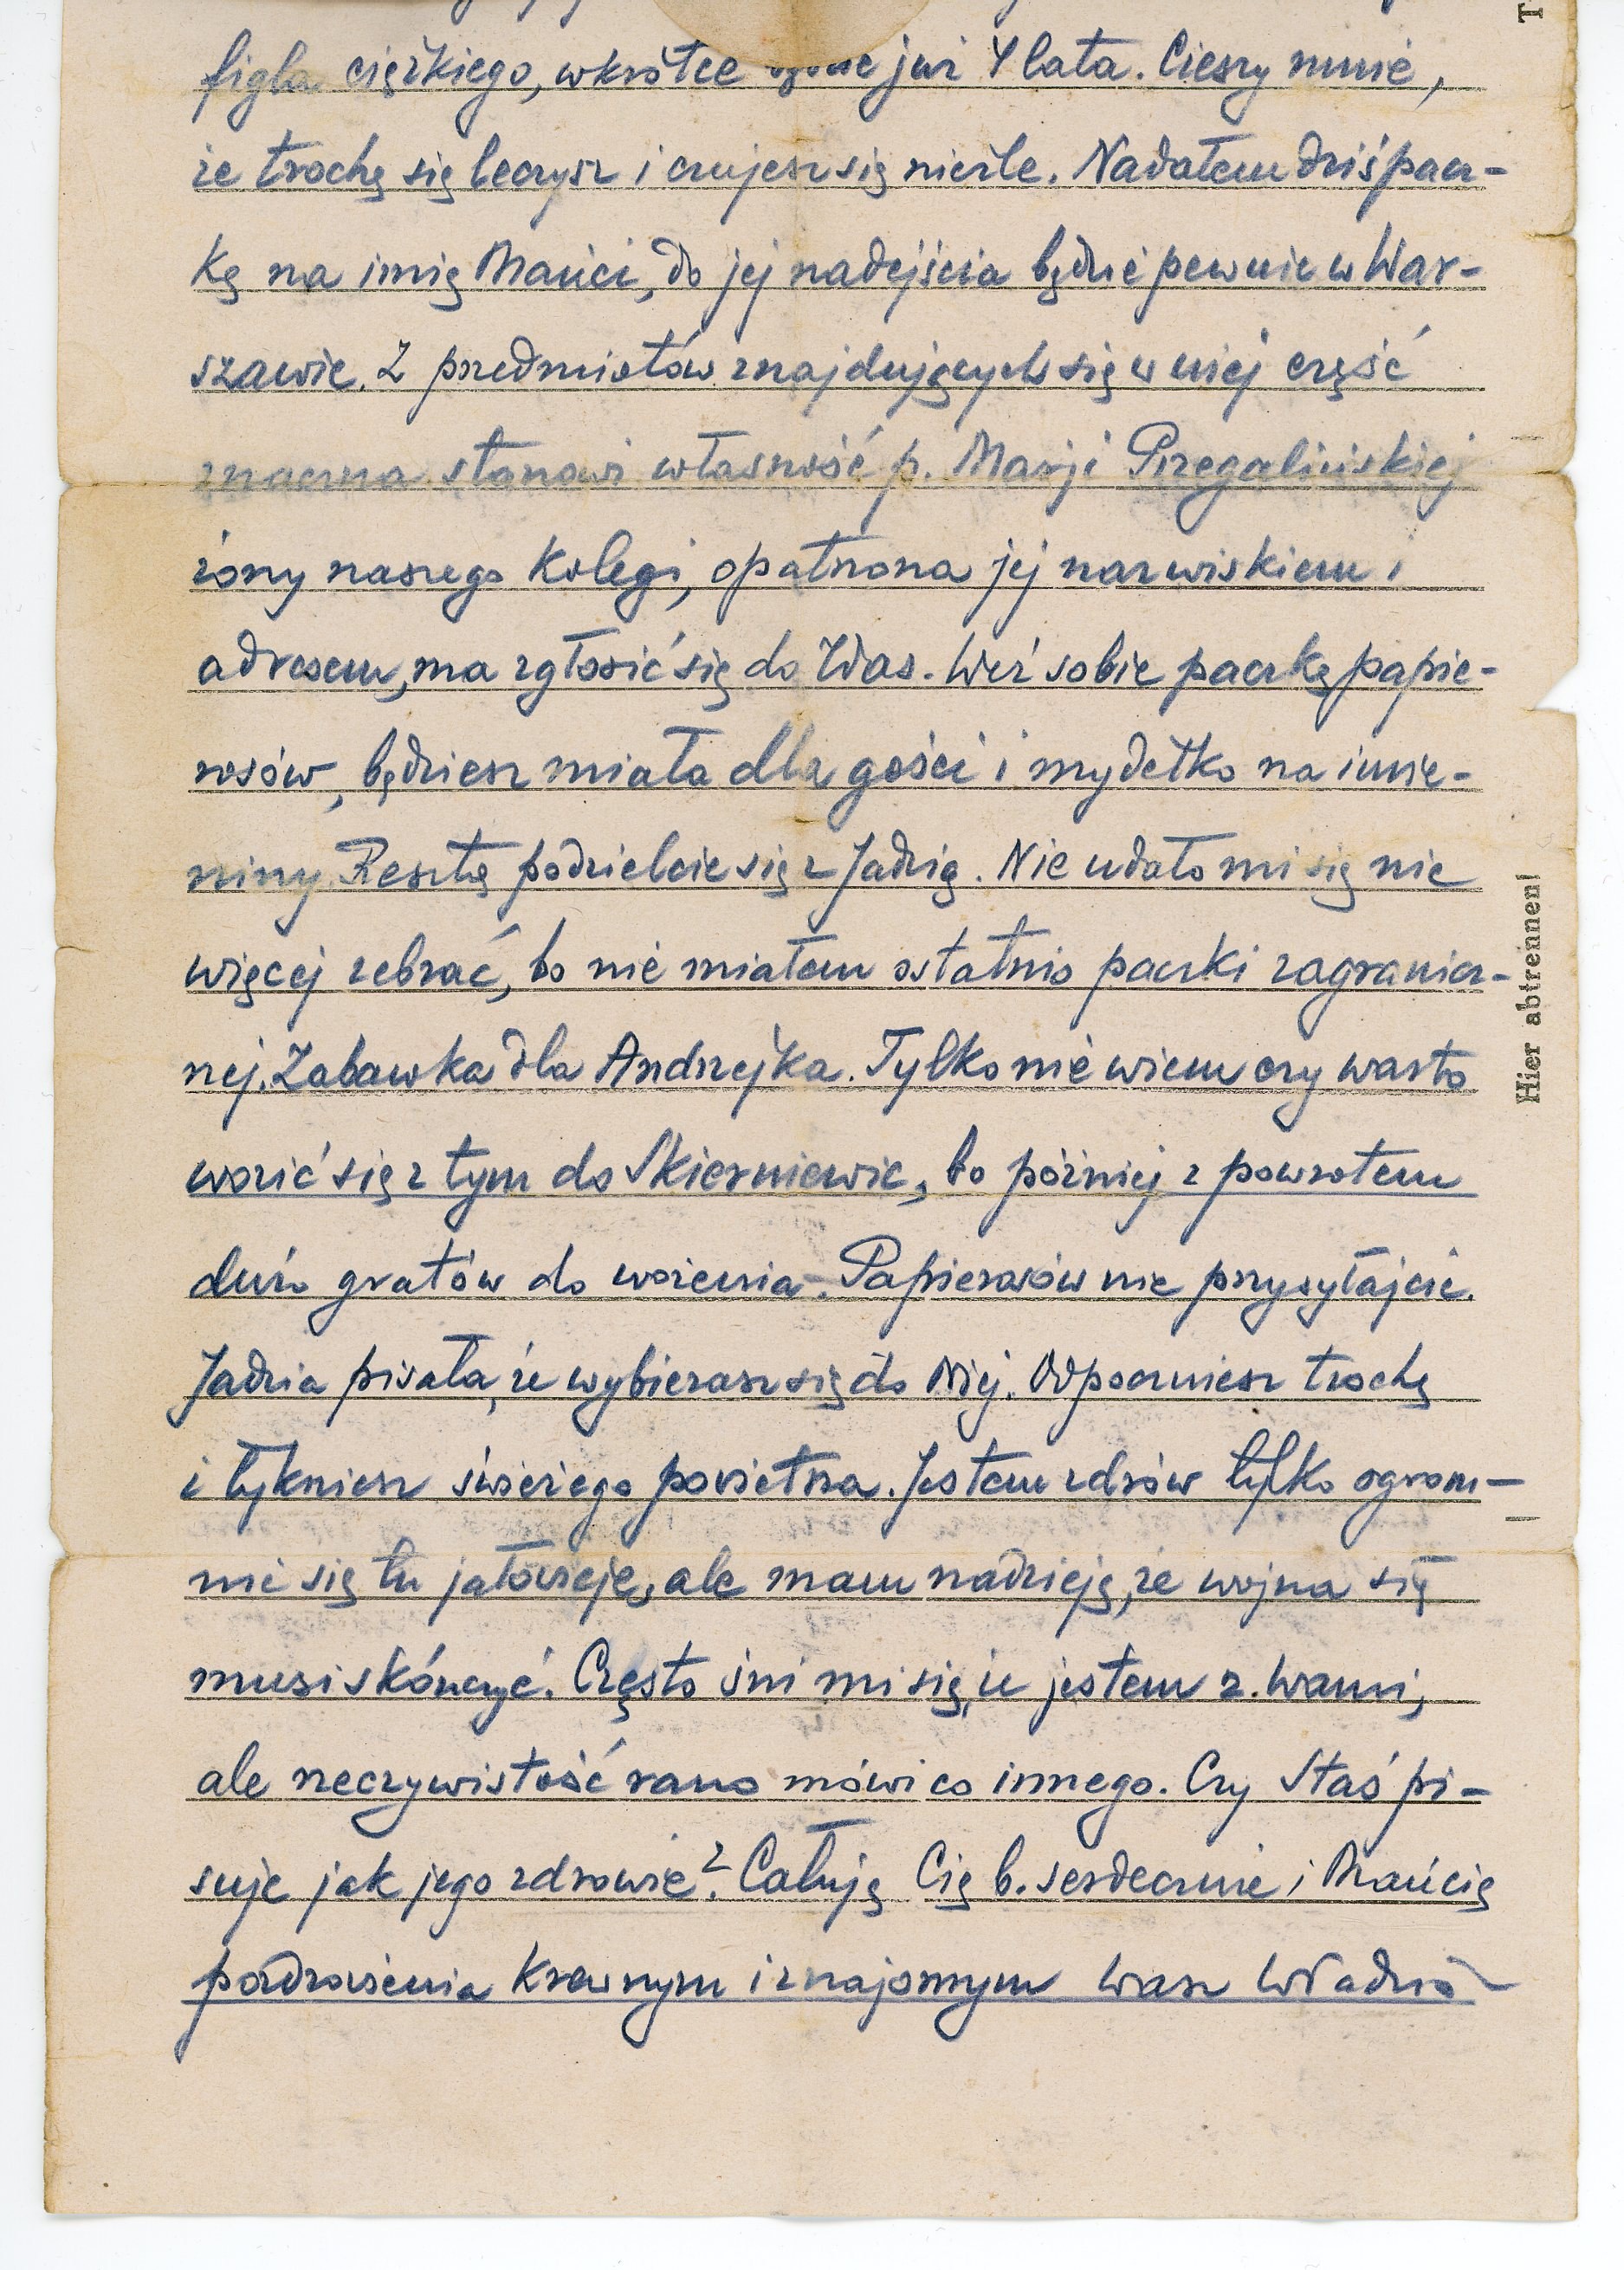 figla ciężkiego, wkrótce będzie już 4 lata. Cieszy mnie,
że trochę się leczysz i czujesz się nieźle. Nadałem dziś pacz-
kę na imię Mańci, do jej nadejścia będzie pewnie w War-
szawie. Z przedmiotów znajdujących się w niej część
znaczna stanowi własność p. Marji Przegalińskiej
żony naszego kolegi, opatrzona jej nazwiskiem i
adresem, ma zgłosić się do Was. Weź sobie paczkę papie-
rosów, będziesz miała dla gości i mydełko na imie-
niny. Resztą podzielcie się z Jadzią. Nie udało mi się nic
więcej zebrać, bo nie miałem ostatnio paczki zagranicz-
nej. Zabawka dla Andrzejka. Tylko nie wiem czy warto
wozić się z tym do Skierniewic, bo później z powrotem
dużo gratów do wożenia. Papierosów nie przysyłajcie.
Jadzia pisała, że wybierasz się do Niej. Odpoczniesz trochę
i łykniesz świeżego powietrza. Jestem zdrów tylko ogrom-
nie się tu jałowieje, ale mam nadzieję, że wojna się
musi skończyć. Często śni mi się, że jestem z Wami,
ale rzeczywistość rano mówi co innego. Czy Staś pi-
suje jak jego zdrowie? Całuję Cię b. serdecznie i Mańcię
pozdrowienia krewnym i znajomym Wasz Władzio
Hier abtrennen!